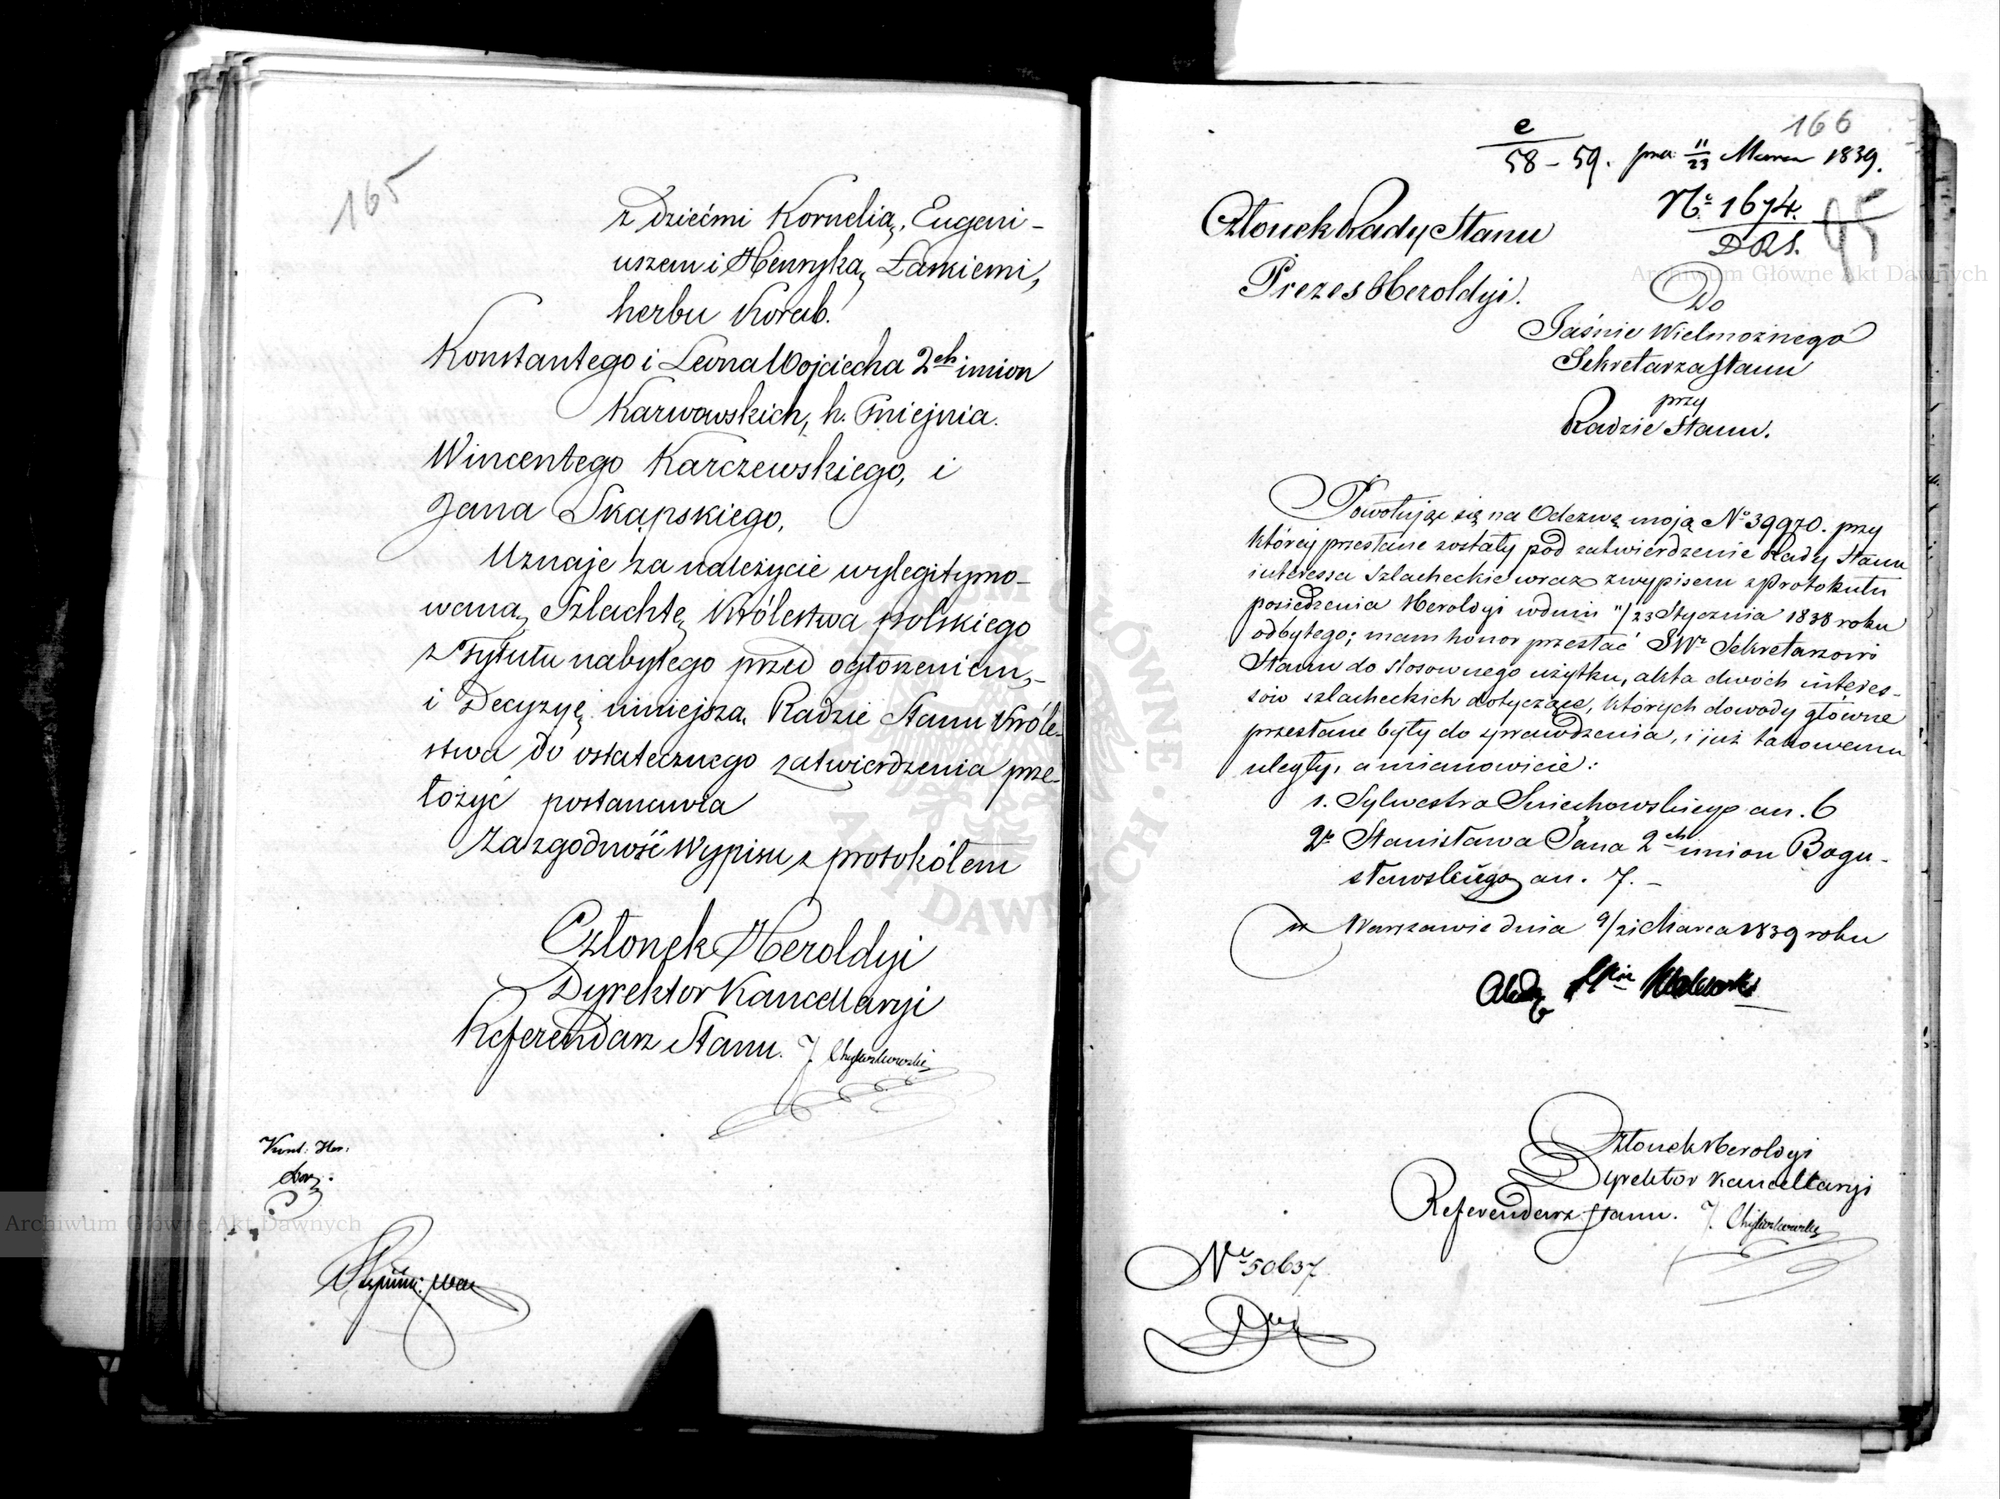 165
z Dziećmi Kornelią, Eugeni-
uszem i Henryką, Łaskiemi,
herbu Korab.
Konstantego i Leona Wojciecha 2ch imion
Karwowskich, h. Pniejnia.
Wincentego Karczewskiego, i
Jana Skąpskiego,
Uznaje za należycie wylegitymo-
waną Szlachtę Królestwa polskiego
z tytułu nabytego przed ogłoszeniem,-
i Decyzyę niniejszą Radzie Stanu Króle-
stwa do ostatecznego zatwierdzenia prze-
łożyć postanawia
Za zgodność Wypisu z protokółem
Członek Heroldyi
Dyrektor Kancellaryi
Referendarz Stanu. J.
Archiwum Główne Akt Dawnych
166
e
58-59. 11/23 Marca 1839.
No 1674.
DRS.
95
Członek Rady Stanu
Prezes Heroldyi.
Archiwum Główne Akt Dawnych
Do
Jaśnie Wielmożnego
Sekretarza Stanu
przy
Radzie Stanu.
Powołując się na Odezwę moją No 39970. przy
której przesłane zostały pod zatwierdzenie Rady Stanu
interessa szlacheckie wraz z wypisem z Protokułu
posiedzenia Heroldyi w dniu 11/23 Stycznia 1838 roku
odbytego; mam honor przesłać JWu Sekretarzowi
Stanu do stosownego użytku, akta dwóch interes-
sów szlacheckich dotyczące, których dowody główne
przesłane były do sprawdzenia, i już takowemu
uległy, a mianowicie:
1. Sylwestra an. 6
2o Stanisława Jana 2ch imion Bogu-
sławskiego an. 7.-
w Warszawie dnia 9/21 Marca 1839 roku
Członek Heroldyi
Dyrektor Kancellaryi
Referendarz Stanu. J.
No 50637